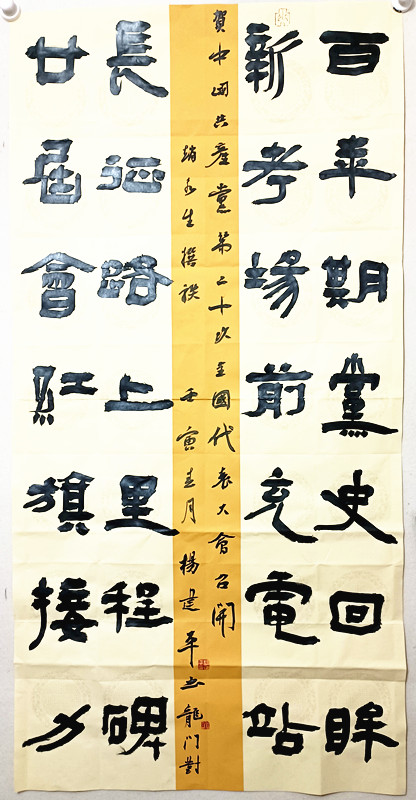 百年期黨史回眸
新考場前充電站
廿屆會紅旗接力
長征路上里程碑
賀中國共產黨第二十次全國代表大會召開
趙永生撰联 壬寅春月 楊建平书龍門對